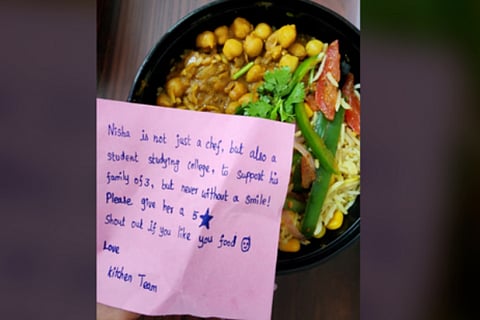 Nisha is not just a chef, but also a
student studying college, to support his
family of 3, but never without a smile!
Please give her a 5★
Shout out if you like you food 😊
Love
Kitchen Team